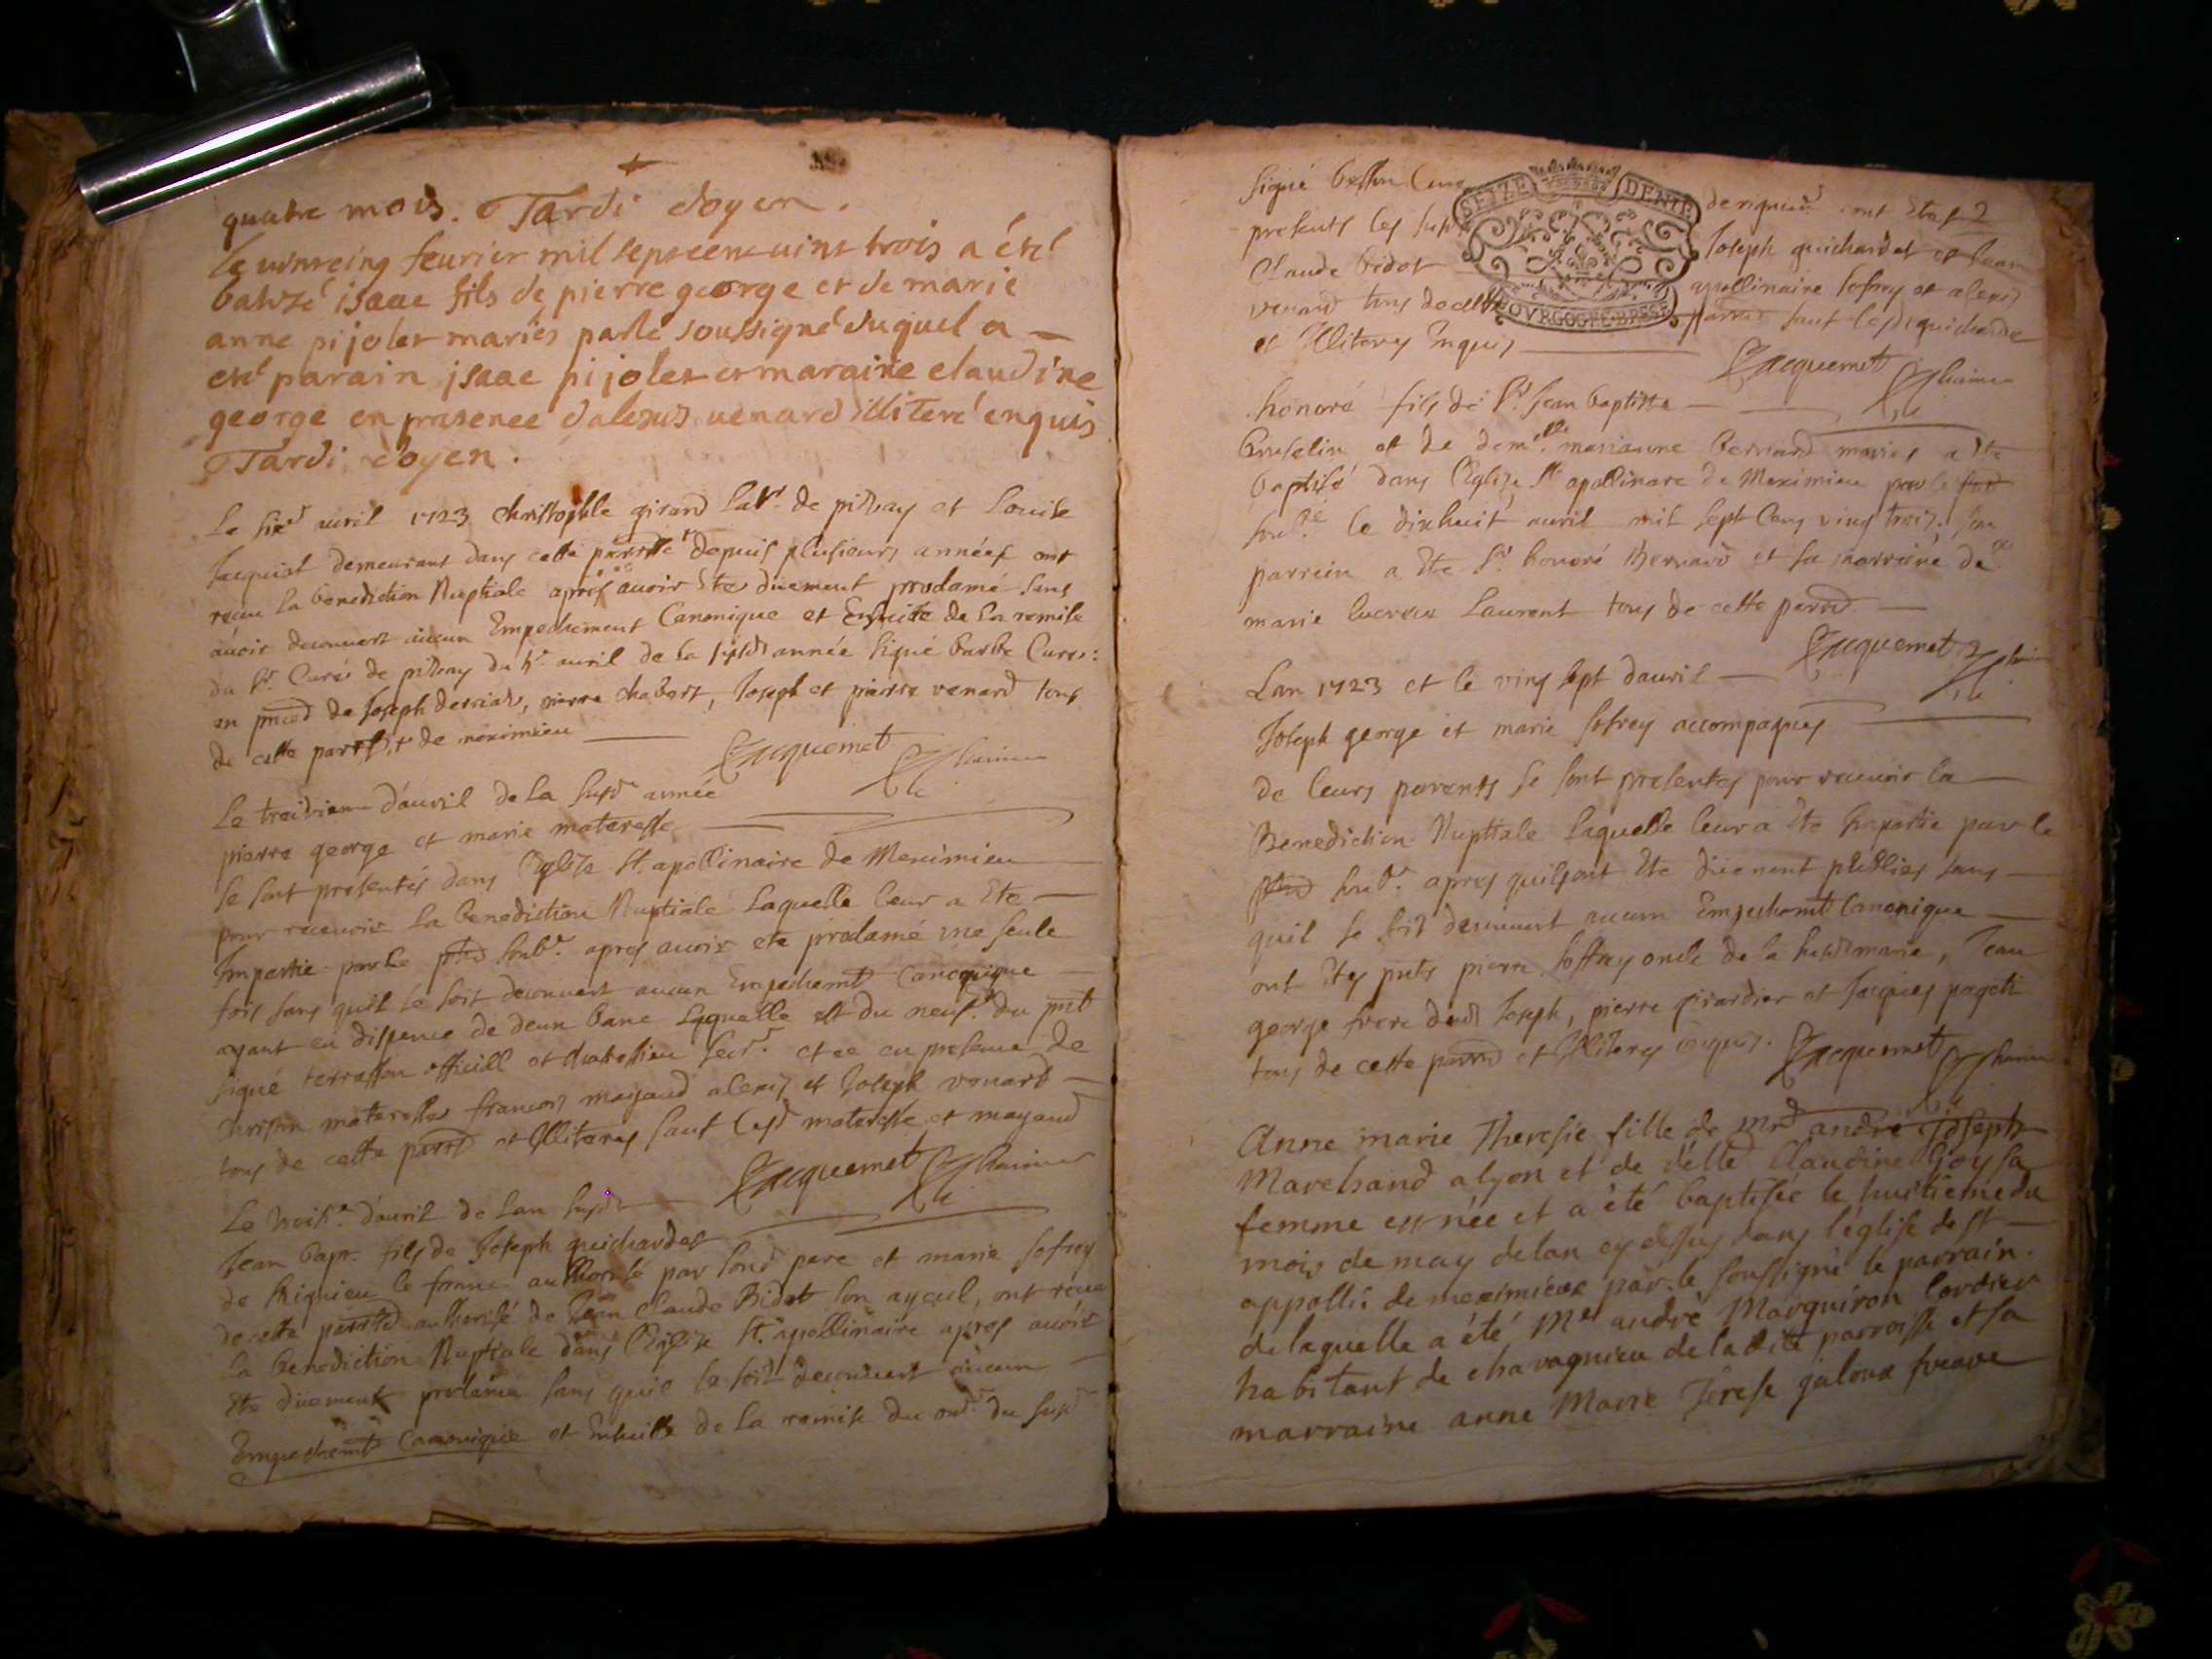 quatre mois. Tardi doyen.
le vintcinq feurier mil septcent uint trois a été
batizé isaac fils de pierre george et de marie
anne pijolet mariés par le soussigné duquel a
eté parain isaac pijolet et maraine claudine
george en presence dalexis uenard illiteré enquis
Tardi doyen.
Le six.e auril 1723 christophle girard lab.r de pisay et Louise
Jacquiot demeurant dans cette parr.sse depuis plusieurs années ont
receu la benediction Nuptiale aprés auoir Ete düement proclamé sans
auoir decouuert aucun Empechement Canonique et Ensuite de la remise
du Sr. Curé de pisay du auril de la susd. année signé Curé:
en pnce de Joseph derriat, pierre chabert, Joseph et pierre venard tous
de cette parr. de meximieu
Jacquemet
Le treisieme d'auril de la susd. année
pierre george et marie materesse
se sont presentés dans l'Eglise St. apollinaire de Meximieu
pour receuoir La benediction Nuptiale Laquelle leur a Ete
Impartie par Le soub. apres auoir ete proclamé vne seule
fois sans quil se soit decouuert aucun Empechemt Canonique
ayant eu dispence de deux banc Laquelle est du neuf. du pnt
signé terrasson officiall et et ce en presence de
materesse francois mayand alexis et Joseph venard
tous de cette et Illiteres sauf lesd. materesse et mayand
Jacquemet
Le d'auril de Lan susd.
Jean bapt. fils de Joseph guichardet
de Rignieu le franc authorisé par sond pere et marie Jofrey
de cette authorisé de Jean Claude Bidot son ayeul, ont receu
la benediction Nuptiale dans l'Eglise St. apollinaire apres auoir
Ete duement proclamé sans quil se soit decouuert aucun
Empechemt Canonique et Ensuitte de la remise du du susd.
signé Curé de rignieu ont Etes
presents les SEIZE DENIE Joseph guichardet et Jean
Claude bidot apollinaire Jofrey et alexis
venard tous de cette BOVRGOGNE BRESSE sauf guichardet
et Illiteres Enquis
Jacquemet
honoré fils de Sr. Jean baptiste
et de demlle. marianne bernard mariés a Ete
baptisé dans l'Eglise St apollinare de Meximieu par le
soub. le dixhuit auril mil sept Cens ving trois. son
parrein a Ete Sr. honoré Bernard et sa marreine de
marie Laurent tous de cette
Jacquemet
Lan 1723 et le ving sept dauril
Joseph george et marie Jofrey accompagnes
de leurs parents se sont presentes pour receuoir la
Benediction Nuptiale Laquelle leur a Ete Impartie par le
soub. apres quils ont Ete düement publies sans
quil se soit decouuert aucun Empechemt Canonique
ont Etes pnts pierre Joffrey oncle de la susd marie, Jean
george frere dud Joseph, pierre girardier et Jacques
tous de cette et Illiteres enquis. Jacquemet
Anne marie Theresie fille de Mr andré Joseph
Marchand a lyon et de delle Claudine Goy sa
femme est née et a été baptisée le huitieme du
mois de may de lan cy dessus dans l'église de st
appolli: de meximieux par le soussigné le parrain
de laquelle a été Mr andré Marguiron Cordier
habitant de chavagnieu de la dite parroisse et sa
marraine anne Marie Térese jaloux